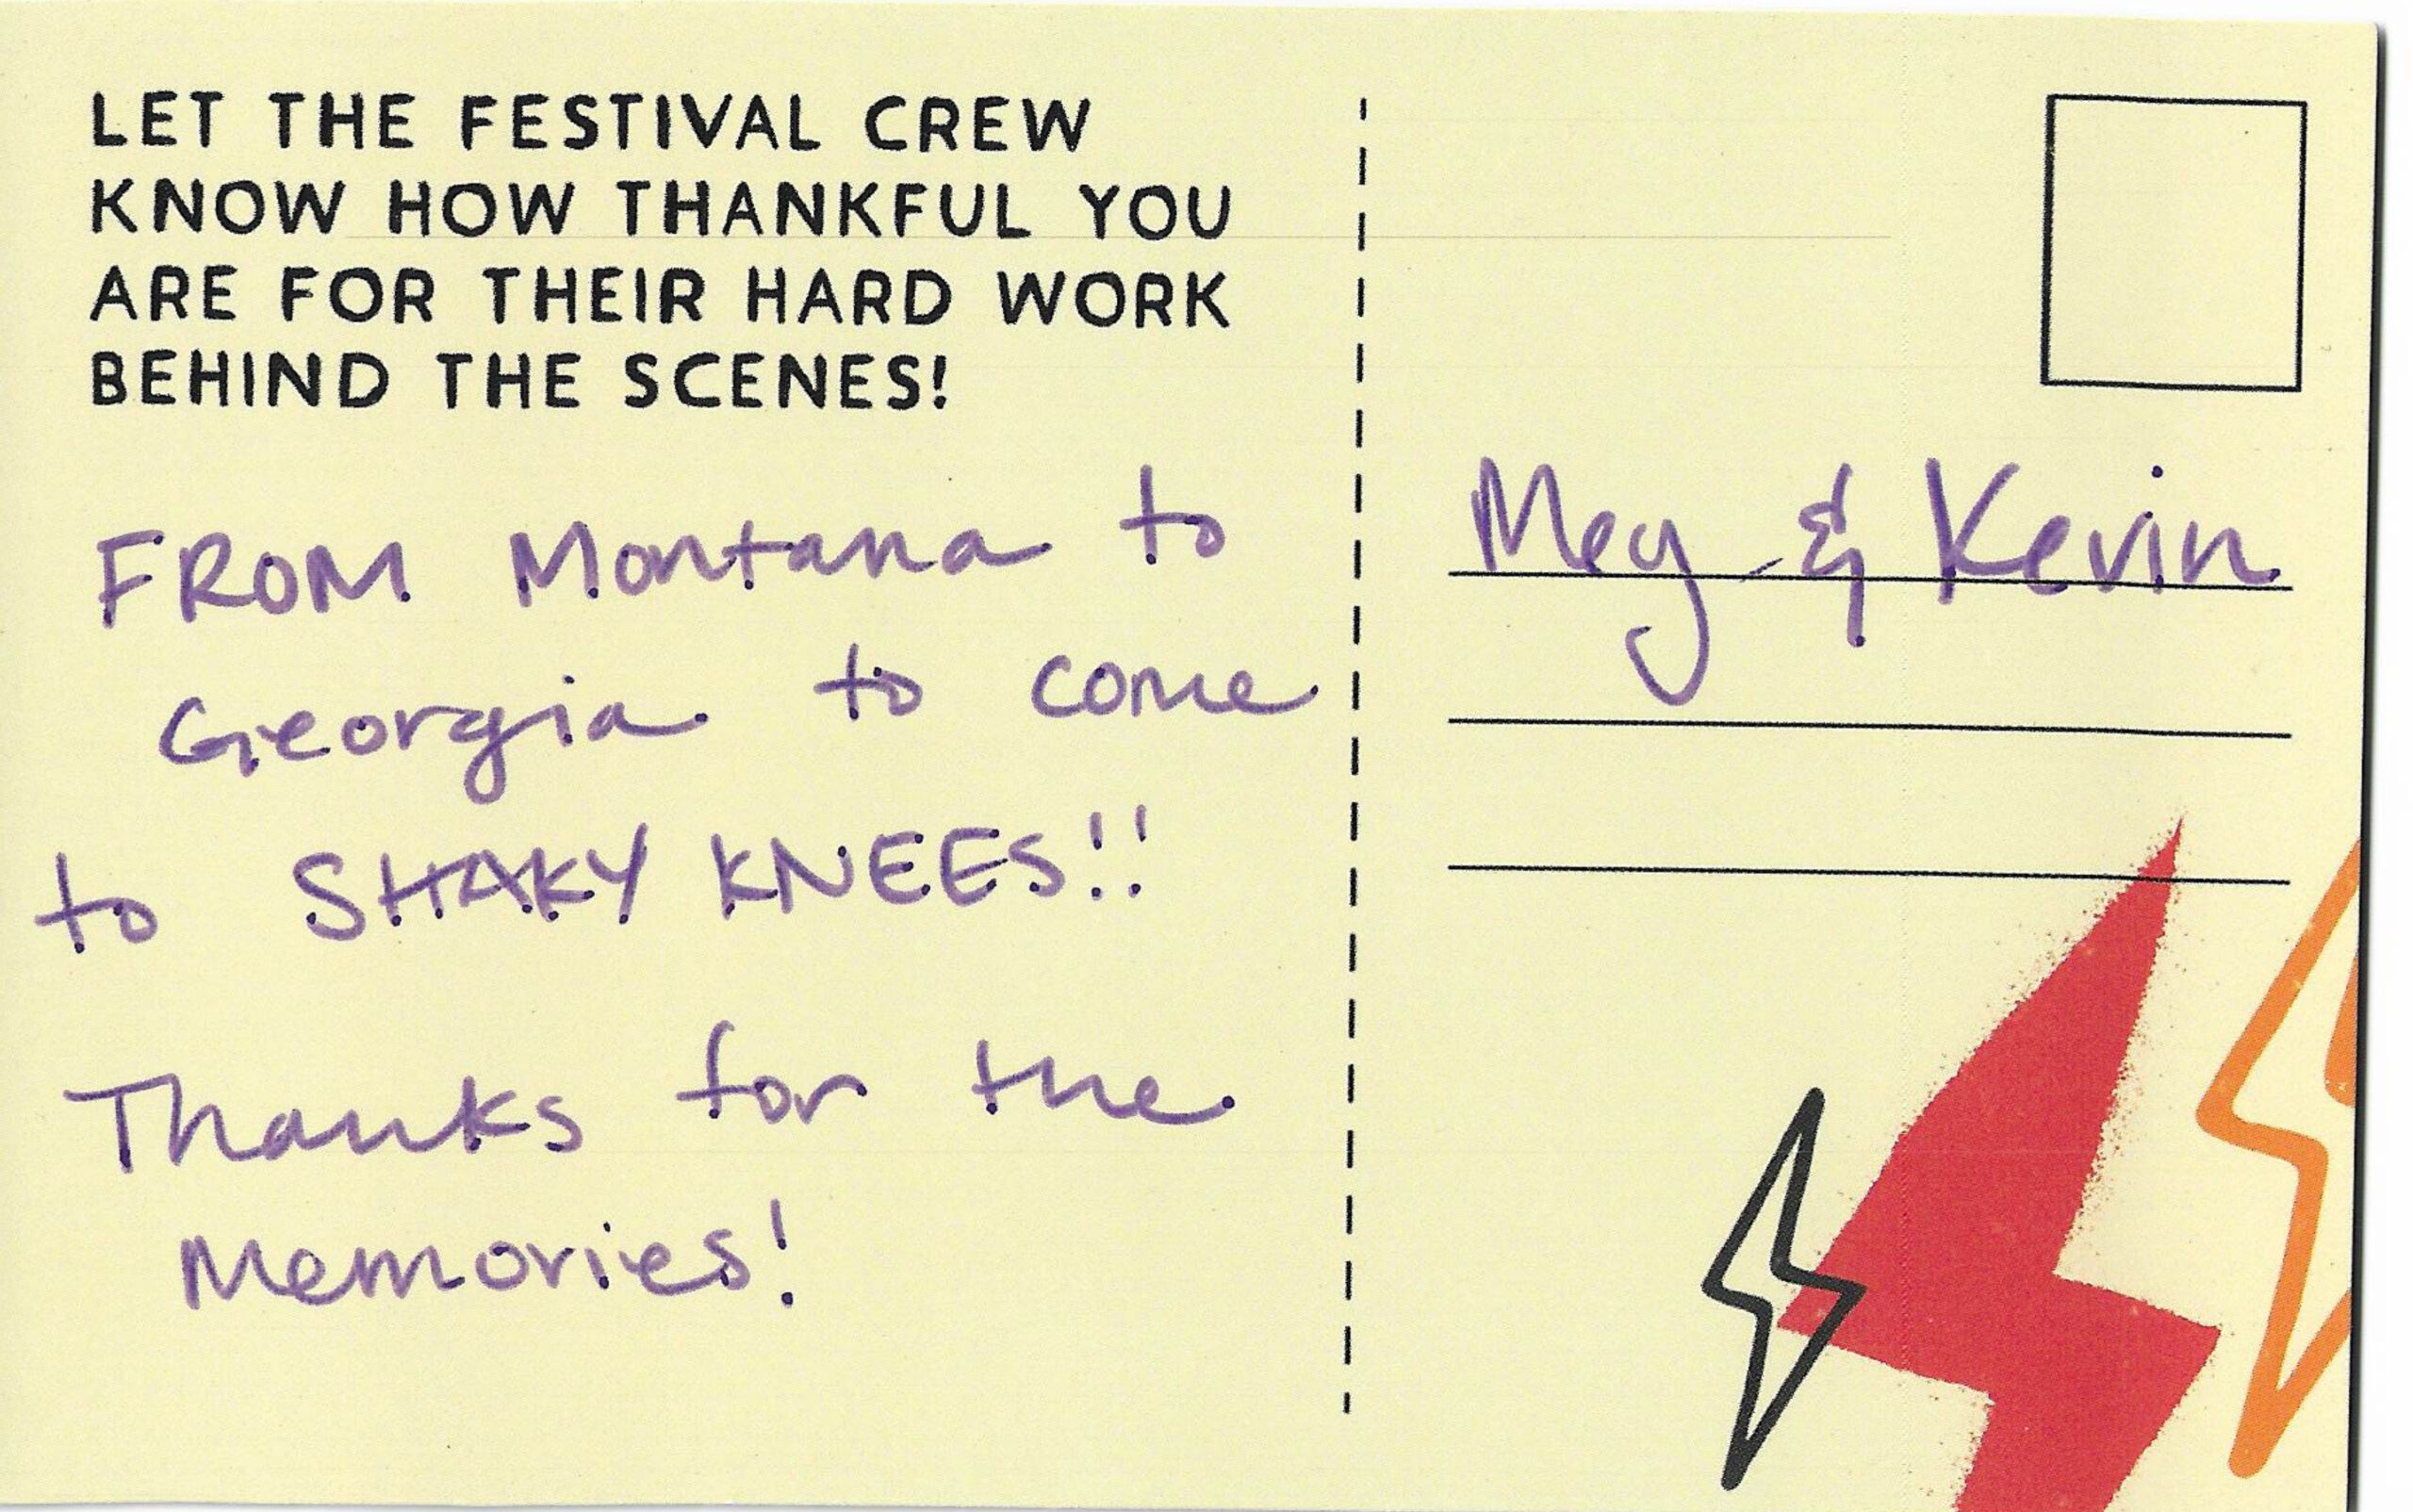 LET THE FESTIVAL CREW
KNOW HOW THANKFUL YOU
ARE FOR THEIR HARD WORK
BEHIND THE SCENES!
FROM Montana to
Georgia to come
to SHAKY KNEES!!
Thanks for the
Memories!
Meg & Kevin